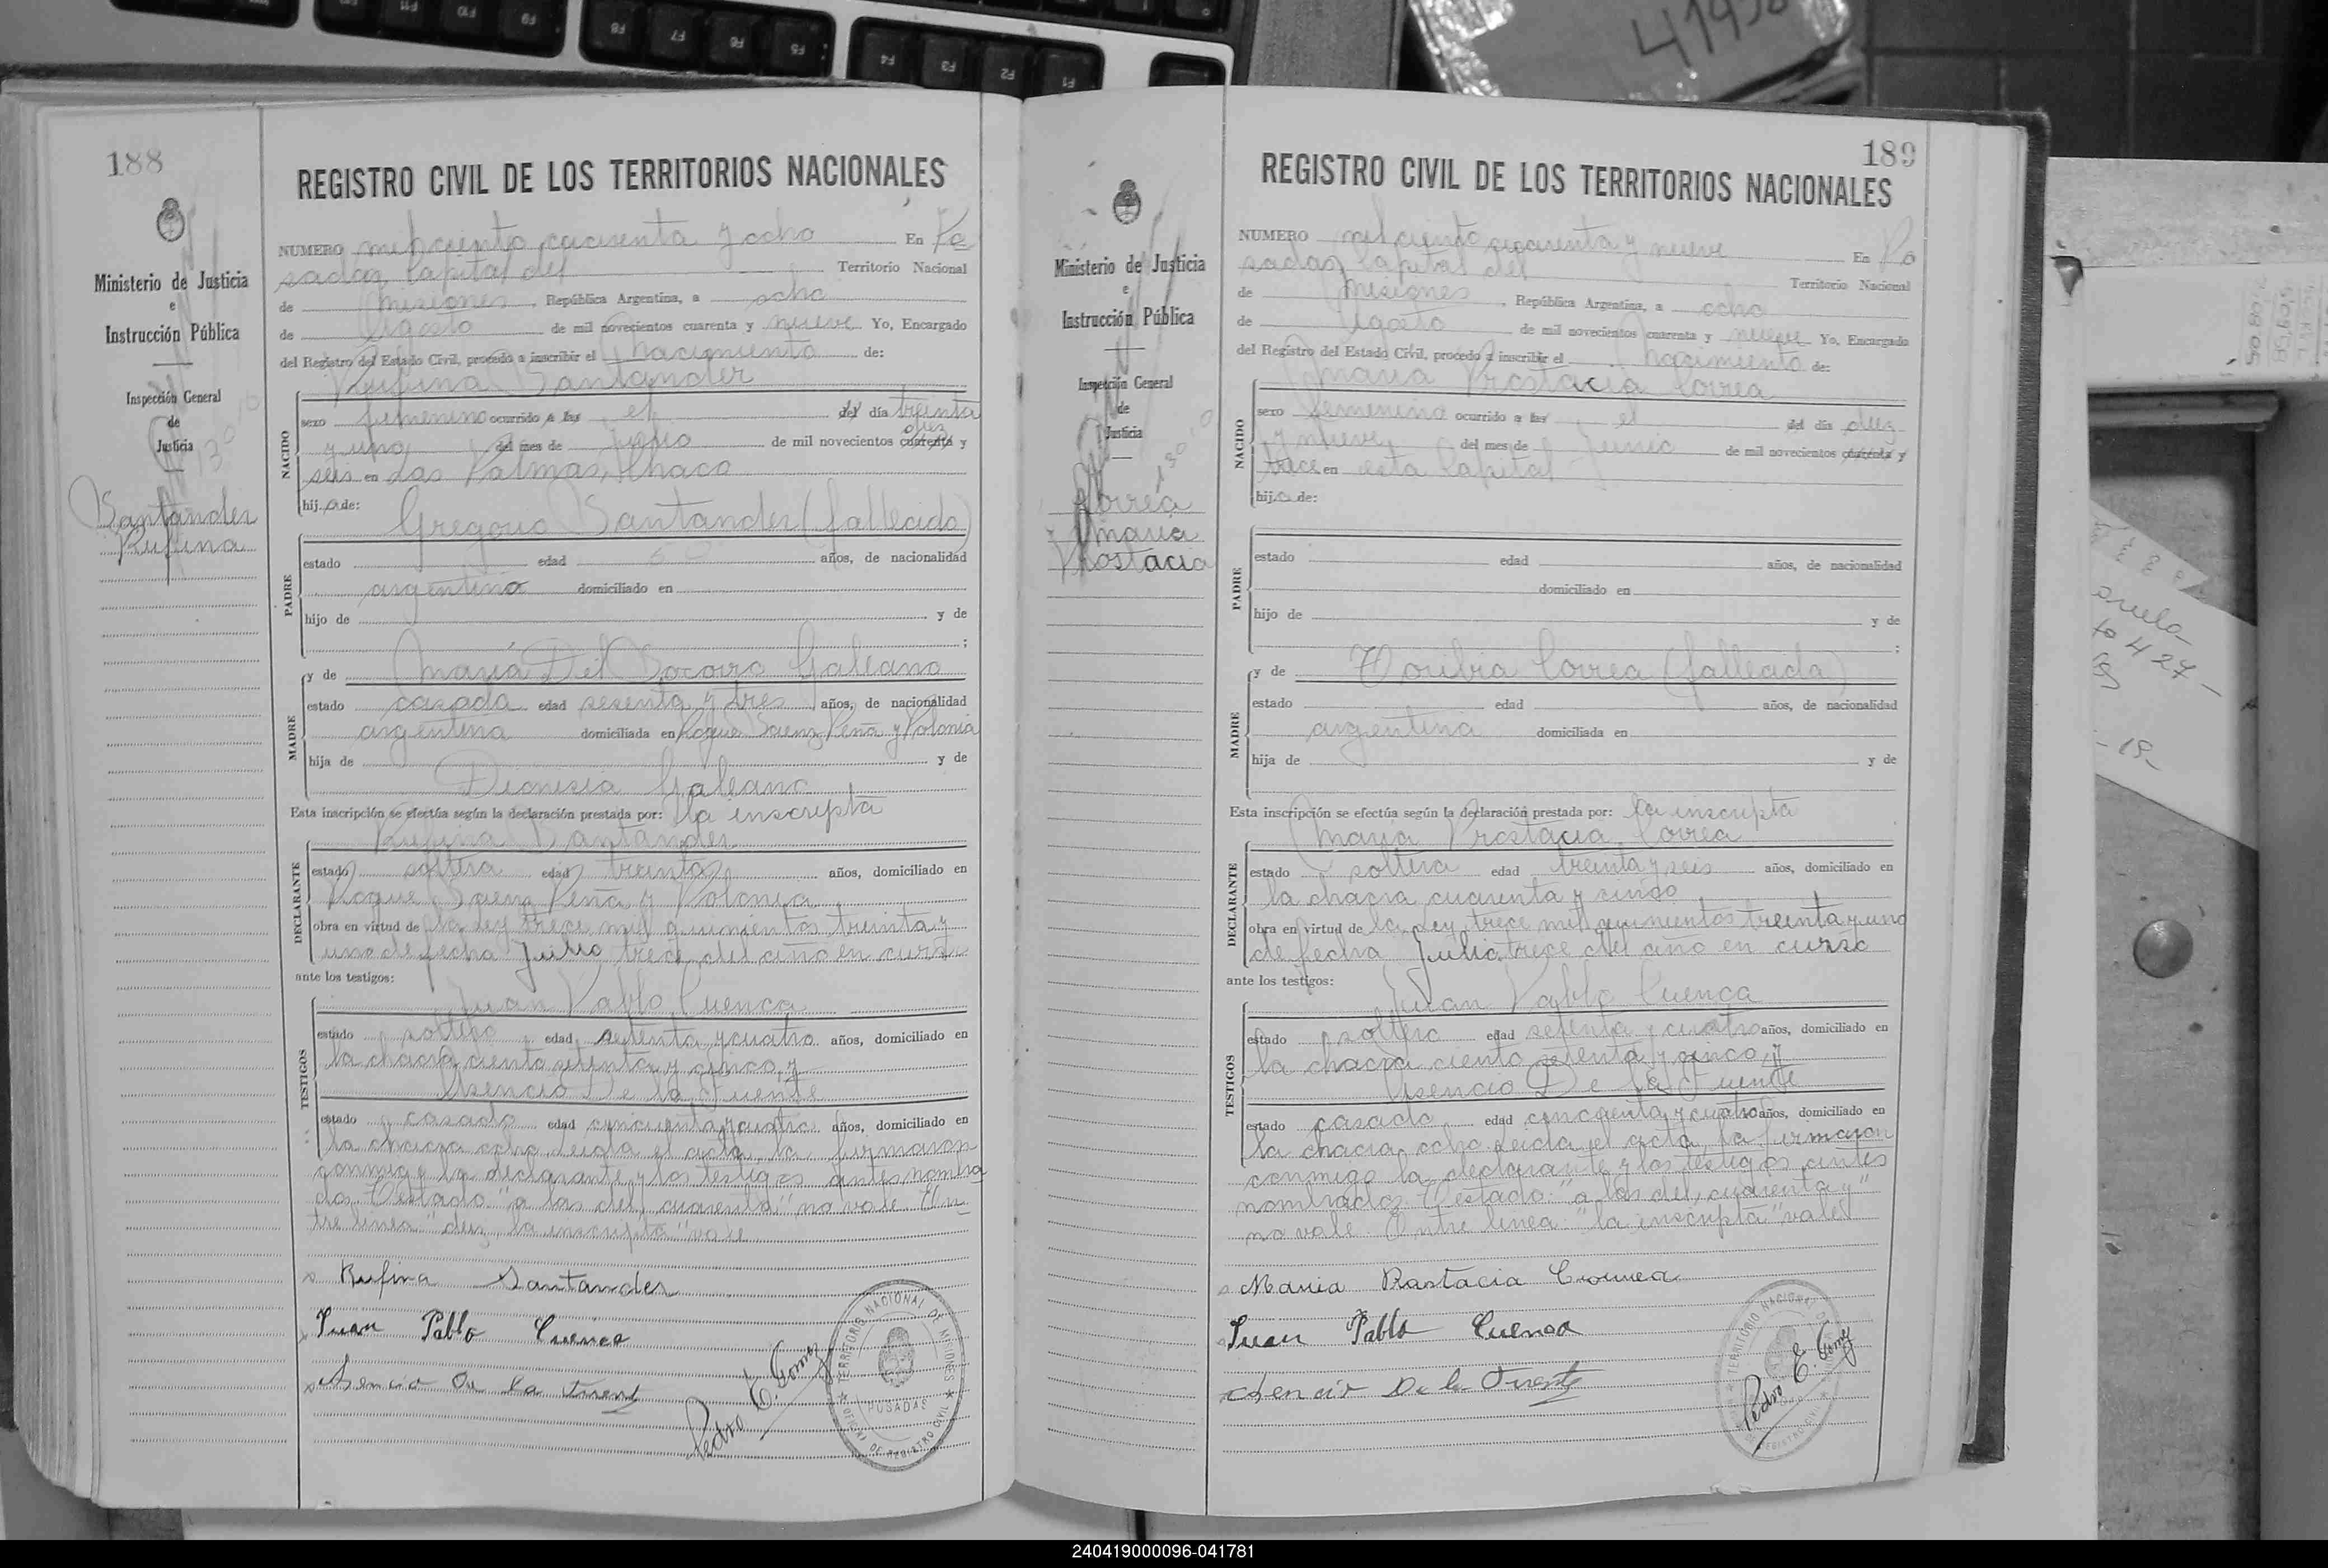 F12 F11 F10 F9 F8 F7 F6 F5 F4 F3 F2 F1
4193
188
REGISTRO CIVIL DE LOS TERRITORIOS NACIONALES
Ministerio de Justicia
e
Instrucción Pública
Inspección General
de
Justicia
Santander
Rufina
NUMERO mil ciento cincuenta y ocho En Po
sadas, Capital del Territorio Nacional
de Misiones, República Argentina, a ocho
de Agosto de mil novecientos cuarenta y nueve Yo, Encargado
del Registro del Estado Civil, procedo a inscribir el nacimiento de:
Rufina Santander
NACIDO
sexo femenino ocurrido a las el del día treinta
diez
y uno del mes de Julio de mil novecientos cuarenta y
seis en Las Palmas, Chaco
hija de:
Gregorio Santander (fallecido)
PADRE
estado edad años, de nacionalidad
argentino domiciliado en
hijo de y de
;
y de María Del Socorro Galeano
MADRE
estado casada edad sesenta y tres años, de nacionalidad
argentina domiciliada en Roque Saenz Peña y Polonia
hija de y de
Dionisia Galeano
Esta inscripción se efectúa según la declaración prestada por: la inscripta
Rufina Santander
DECLARANTE
estado soltera edad treinta años, domiciliado en
Roque Saenz Peña y Polonia
obra en virtud de la ley trece mil quinientos treinta y
uno de fecha Julio trece del año en curso
ante los testigos:
Juan Pablo Cuenca
TESTIGOS
estado soltero edad setenta y cuatro años, domiciliado en
la chacra ciento setenta y cinco, y
Asencio De la Fuente
estado casado edad cincuenta y cuatro años, domiciliado en
la chacra ocho. Leida el acta, la firmaron
conmigo la declarante y los testigos antes nombra
dos. Testado: "a las del, cuarenta" no vale. En
tre linea: "diez, la inscripta" vale
Rufina Santander
Juan Pablo Cuenca
Asencio De la Fuente
Pedro E. Gomez
TERRITORIO NACIONAL DE MISIONES
POSADAS
OFICINA DE REGISTRO CIVIL
189
REGISTRO CIVIL DE LOS TERRITORIOS NACIONALES
Ministerio de Justicia
e
Instrucción Pública
Inspección General
de
Justicia
Correa
María
Prostacia
NUMERO mil ciento cincuenta y nueve En Po
sadas, Capital del Territorio Nacional
de Misiones, República Argentina, a ocho
de Agosto de mil novecientos cuarenta y nueve Yo, Encargado
del Registro del Estado Civil, procedo a inscribir el nacimiento de:
María Prostacia Correa
NACIDO
sexo femenino ocurrido a las el del día diez
y nueve del mes de Junio de mil novecientos cuarenta y
trece en esta Capital
hija de:
PADRE
estado edad años, de nacionalidad
domiciliado en
hijo de y de
;
y de Toribia Correa (fallecida)
MADRE
estado edad años, de nacionalidad
argentina domiciliada en
hija de y de
Esta inscripción se efectúa según la declaración prestada por: la inscripta
María Prostacia Correa
DECLARANTE
estado soltera edad treinta y seis años, domiciliado en
la chacra cuarenta y cinco
obra en virtud de la Ley trece mil quinientos treinta y uno
de fecha Julio trece del año en curso
ante los testigos:
Juan Pablo Cuenca
TESTIGOS
estado soltero edad setenta y cuatro años, domiciliado en
la chacra ciento setenta y cinco, y
Asencio De la Fuente
estado casado edad cincuenta y cuatro años, domiciliado en
la chacra ocho. Leida el acta, la firmaron
conmigo la declarante y los testigos antes
nombrados. Testado: "a las del, cuarenta y"
no vale. Entre linea: "la inscripta" vale
Maria Rastacia Correa
Juan Pablo Cuenca
Asencio De la Fuente
Pedro E. Gomez
TERRITORIO NACIONAL
REGISTRO CIVIL
427
240419000096-041781